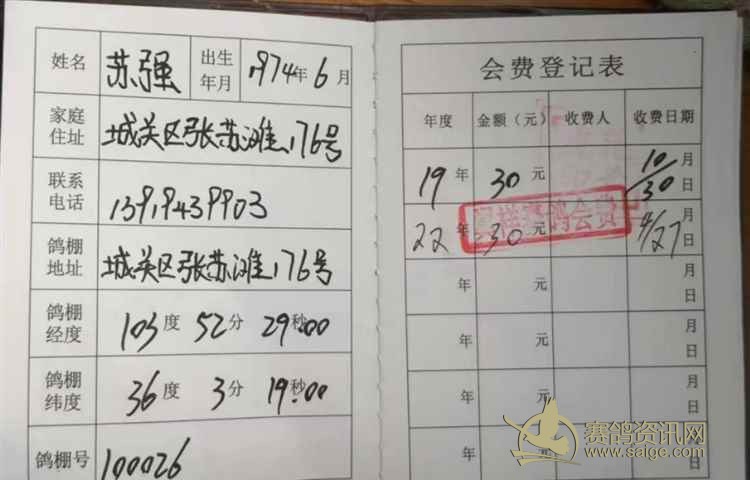 姓名 苏强 出生年月 1974年6月
家庭住址 城关区张苏滩176号
联系电话 13919439903
鸽棚地址 城关区张苏滩176号
鸽棚经度 103度 52分 29秒.00
鸽棚纬度 36度 3分 19秒.00
鸽棚号 100026
会费登记表
年度 金额（元） 收费人 收费日期
19年 30元 10月30日
22年 30元 4/27 月日
赛鸽会费
年 元 月日
年 元 月日
年 元 月日
年 元 月日
赛鸽资讯网
www.saige.com